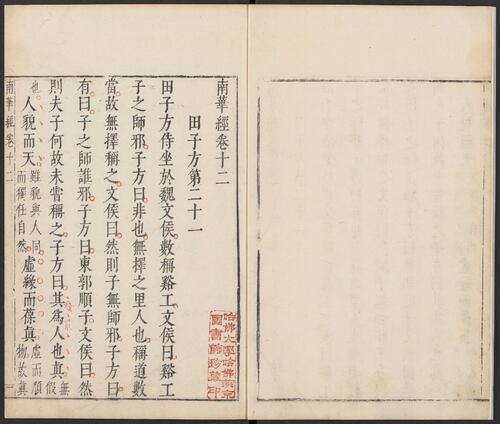 南華經卷十二
田子方第二十一
田子方侍坐於魏文侯數稱谿工文侯曰谿工
子之師邪子方曰非也無擇之里人也稱道數
當故無擇稱之文侯曰然則子無師邪子方曰
有曰子之師誰邪子方曰東郭順子文侯曰然
則夫子何故未嘗稱之子方曰其為人也真無假
也人貌而天雖貌與人同而獨任自然虛緣而葆真虛而順物故真
南華經卷十二
一
哈佛大學哈佛燕京
圖書館珍藏印